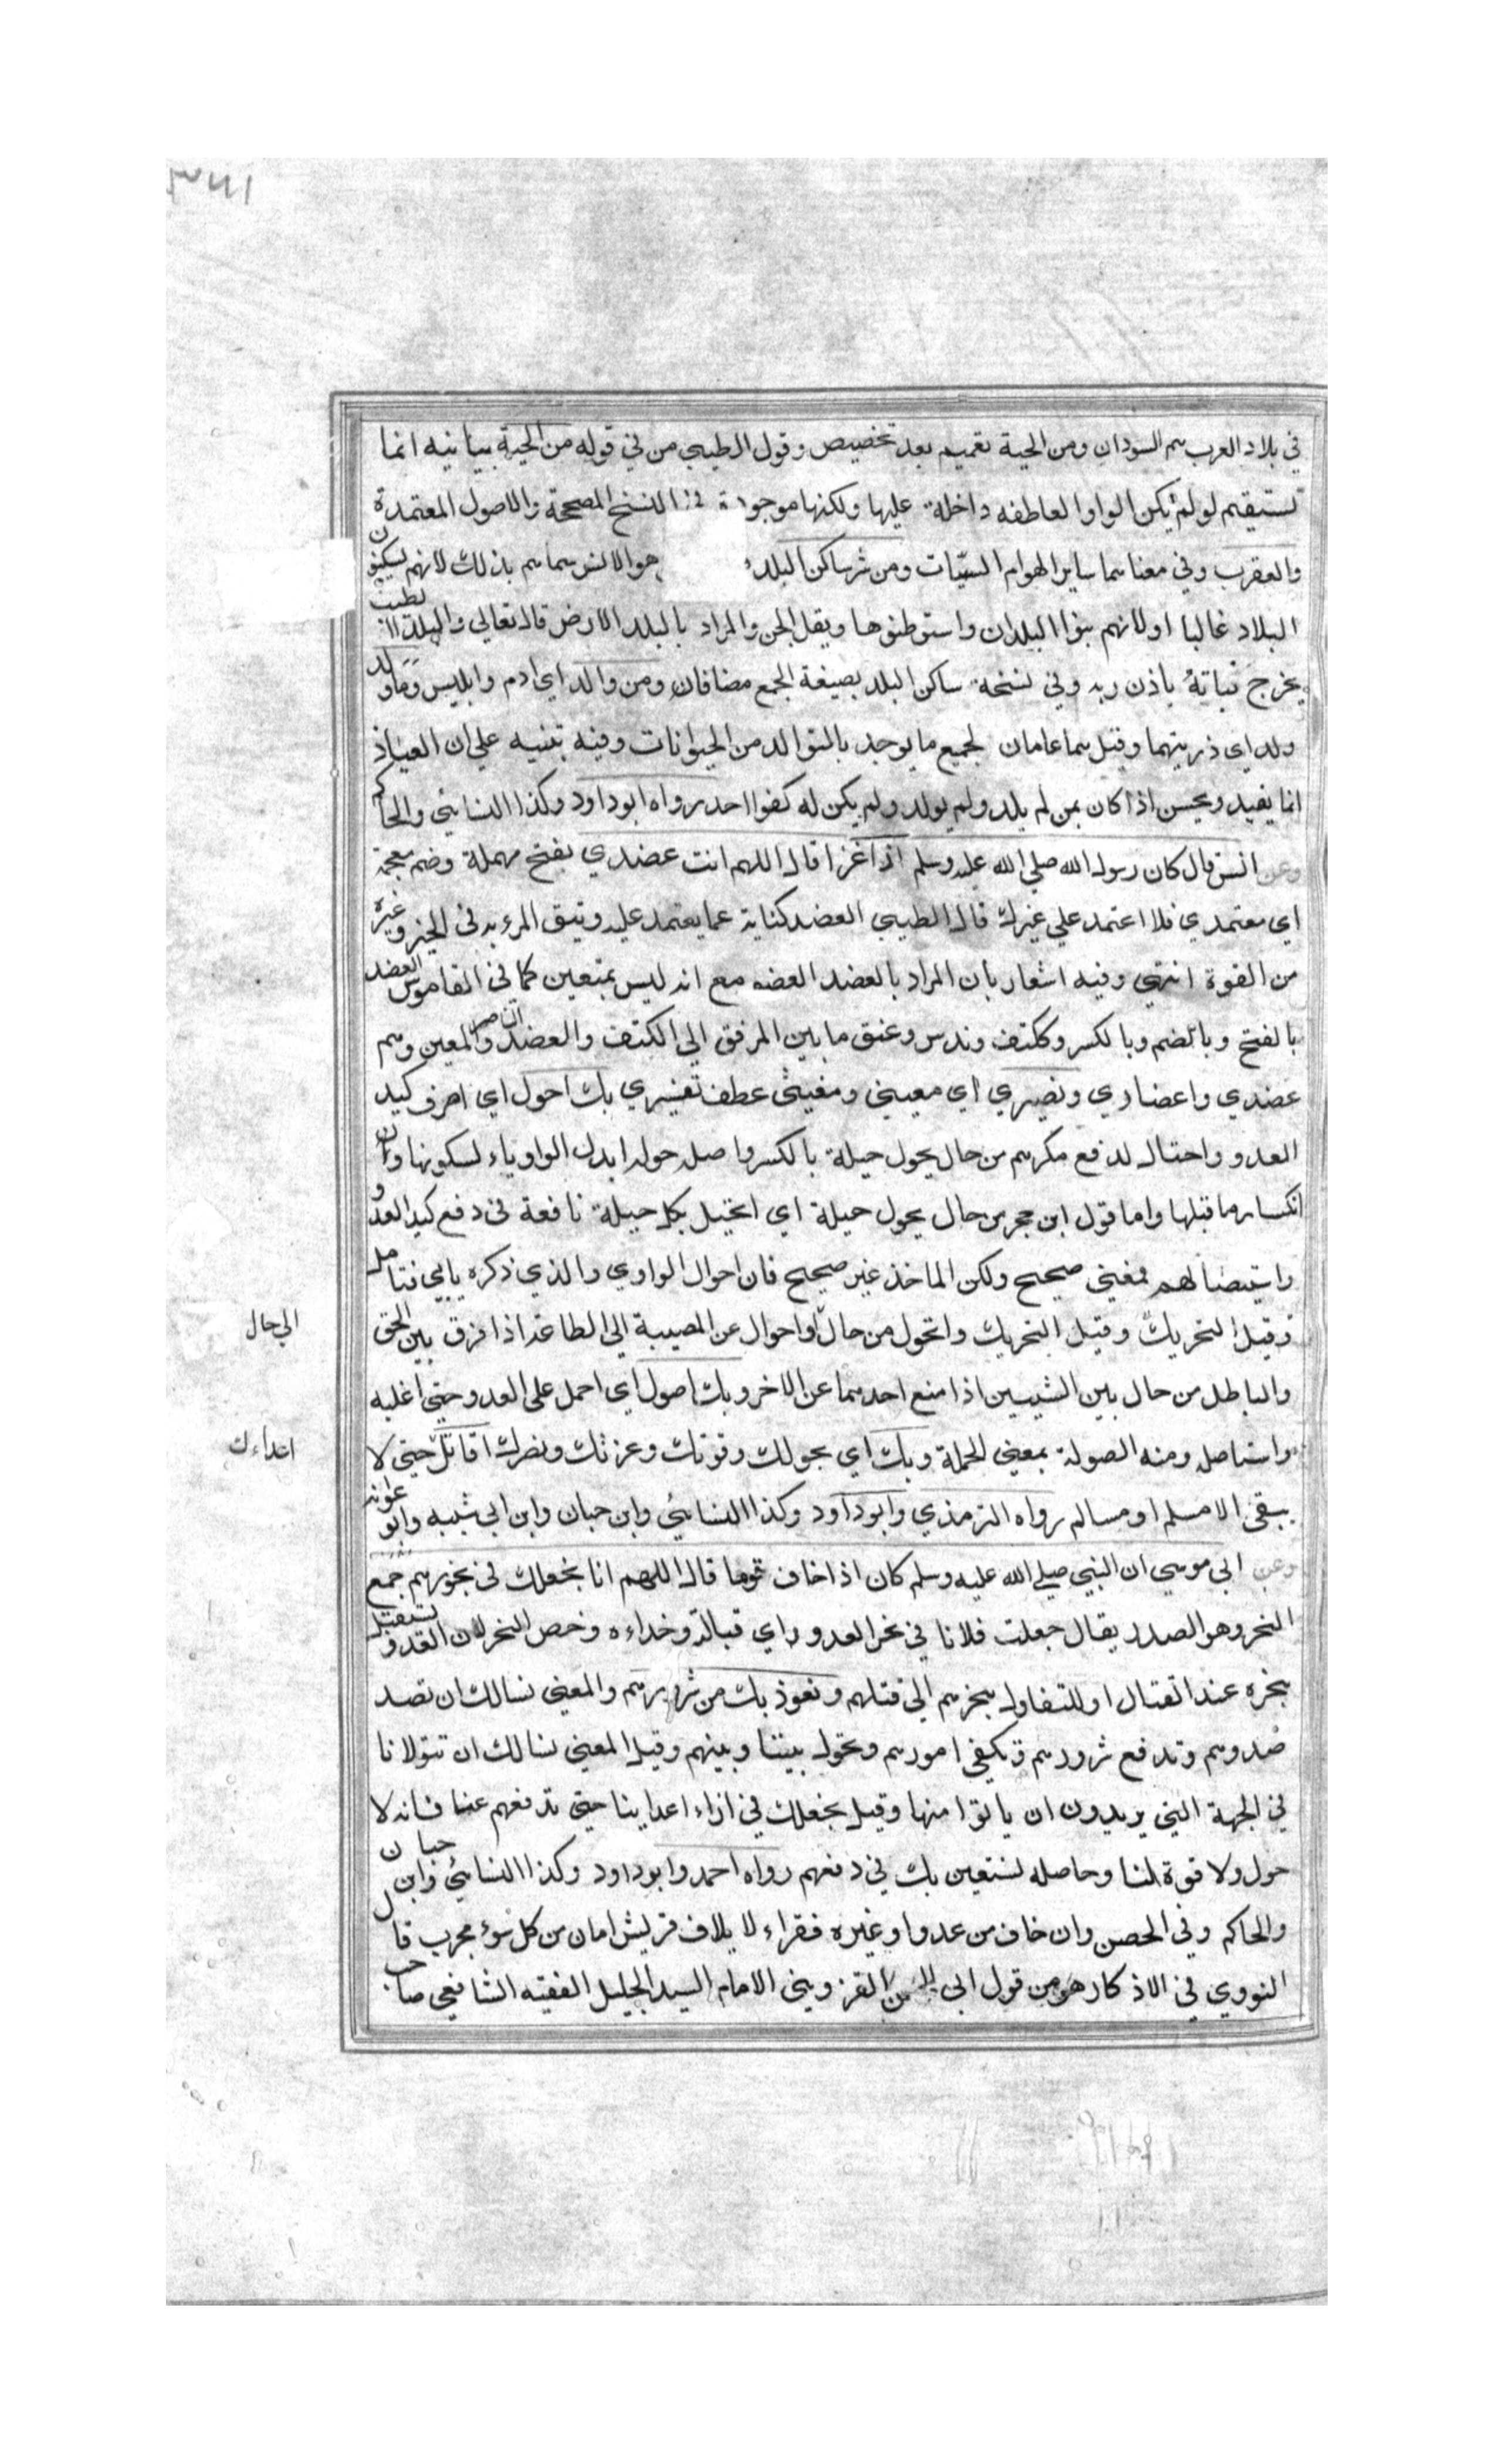 في بلاد العرب هم السودان ومن الحية تعميم بعد تخصيص وقول الطيبي من في قوله من الحية بيانيه انما
تستقيم لو لم يكن الواو العاطفه داخلة عليها ولكنها موجودة في النسخ المصححة والاصول المعتمدة
والعقرب وفي معناهما ساير الهوام السميّات ومن شر ساكن البلد هو الانس سماهم بذلك لانهم يسكنون
البلاد غالبا او لانهم بنوا البلدان واستوطنوها وقيل الجن والمراد بالبلد الارض قال تعالي والبلد الطيب
يخرج نباته باذن ربه وفي نسخة ساكن البلد بصيغة الجمع مضافا ومن والد اي ادم وابليس وما ولد
ولد اي ذريتهما وقيل هما عامان لجميع ما يوجد بالتوالد من الحيوانات وفيه تنبيه علي ان العياذ
انما يفيد ويحسن اذا كان بمن لم يلد ولم يولد ولم يكن له كفوا احد رواه ابو داود وكذا النسائي والحاكم
وعن انس قال كان رسول الله صلي الله عليه وسلم اذا غزا قال اللهم انت عضدي بفتح مهملة وضم معجمة
اي معتمدي فلا اعتمد علي غيرك قال الطيبي العضد كناية عما يعتمد عليه ويثق المرء به في الخير وغيره
من القوة انتهي وفيه اشعار بان المراد بالعضد العضو مع انه ليس بمتعين كما في القاموس العضد
بالفتح وبالضم وبالكسر وككتف وندس وعنق ما بين المرفق الي الكتف والعضد الناصر والمعين وهم
عضدي واعضادي ونصيري اي معيني ومغيثي عطف تفسيري بك احول اي اصرف كيد
العدو واحتال لدفع مكرهم من حال يحول حيلة بالكسر واصله حولة ابدل الواو ياء لسكونها وان
انكسار ما قبلها واما قول ابن حجر من حال يحول حيلة اي اتحيل بكل حيلة نافعة في دفع كيد العدو
واستيصالهم فمعني صحيح ولكن الماخذ غير صحيح فان احوال الواوي والذي ذكره يايي فتامل
وقيل التحريك وقيل التحريك واتحول من حال او احوال عن المصيبة الي الطاعة اذا فرق بين الحق
الي حال
والباطل من حال بين الشيئين اذا منع احدهما عن الاخر وبك اصول اي احمل علي العدو حتي اغلبه
واستاصله ومنه الصولة بمعني الحملة وبك اي بحولك وقوتك وعزتك ونصرك اقاتل حتي لا
اعداءك
يبقي الا مسلم او مسالم رواه الترمذي وابو داود وكذا النسائي وابن حبان وابن ابي شيبه وابو عوانة
وعن ابي موسي ان النبي صلي الله عليه وسلم كان اذا خاف قوما قال اللهم انا نجعلك في نحورهم جمع
النحر وهو الصدر يقال جعلت فلانا في نحر العدو اي قبالته وحذاءه وخص النحر لان العدو يستقبل
بنحره عند القتال او للتفاول بنحرهم الي قتلهم ونعوذ بك من شرورهم والمعني نسالك ان تصد
صدورهم وتدفع شرورهم وتكفي امورهم وتحول بيننا وبينهم وقيل المعني نسالك ان تتولانا
في الجهة التي يريدون ان ياتوا منها وقيل نجعلك في ازاء اعداينا حتي تدفعهم عنا فانه لا
حول ولا قوة لنا وحاصله نستعين بك في دفعهم رواه احمد وابو داود وكذا النسائي وابن حبان
والحاكم وفي الحصن وان خاف من عدو او غيره فقراءة لايلاف قريش امان من كل سوء مجرب قال
النووي في الاذكار هو من قول ابي الحسن القزويني الامام السيد الجليل الفقيه الشافعي صاحب